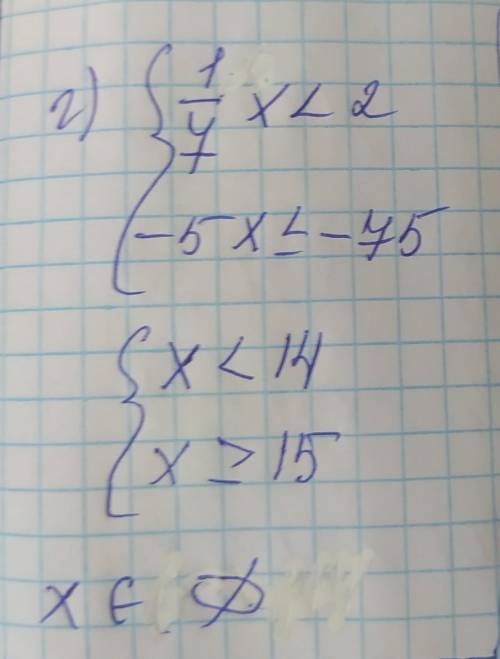 г) { 1/7 x < 2
-5x ≤ -75
{ x < 14
x ≥ 15
x ∈ ∅